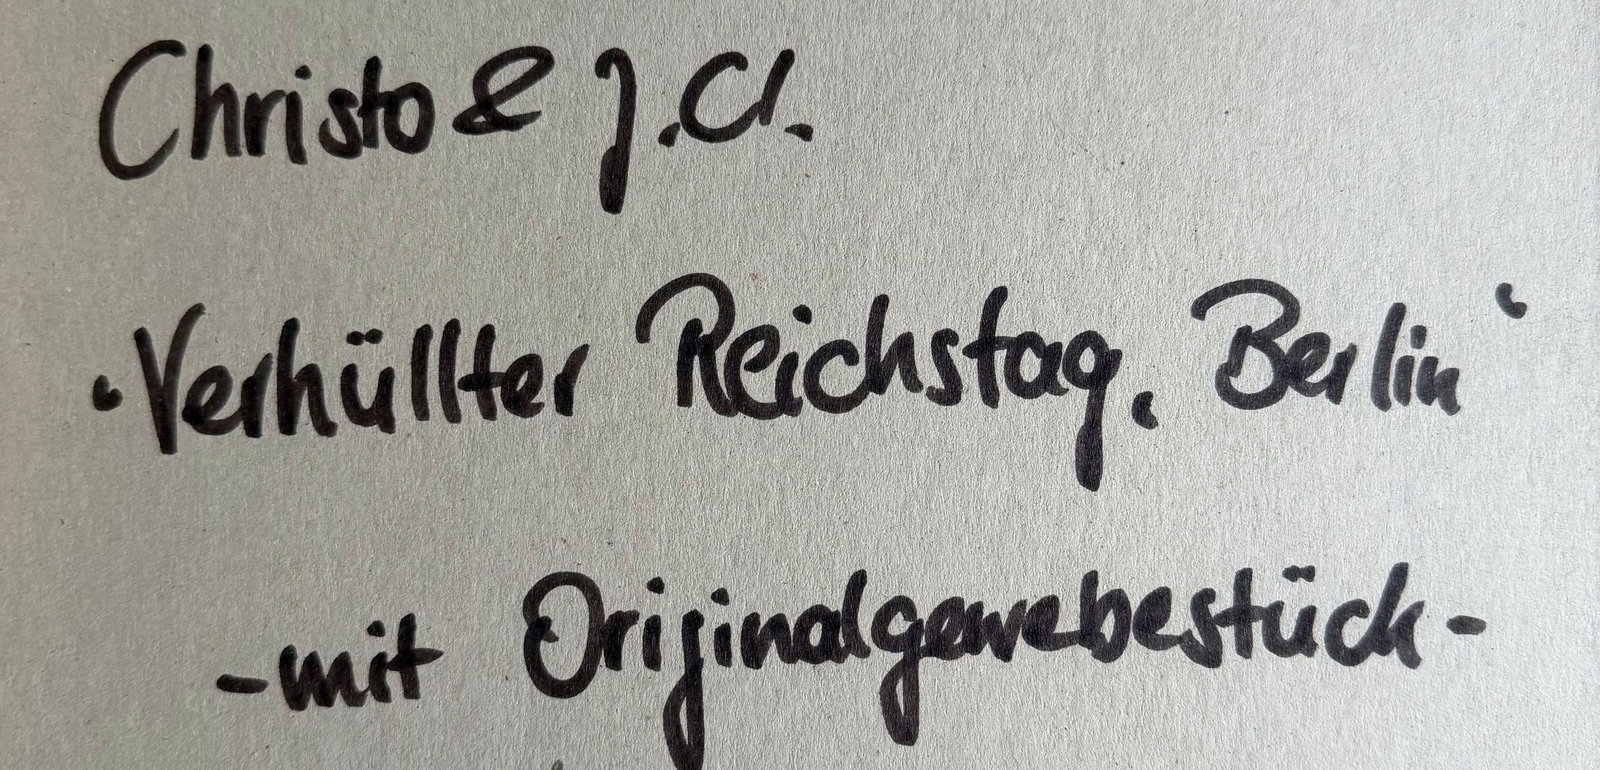 Christo & J.Cl.
"Verhüllter Reichstag, Berlin"
-mit Originalgewebestück-